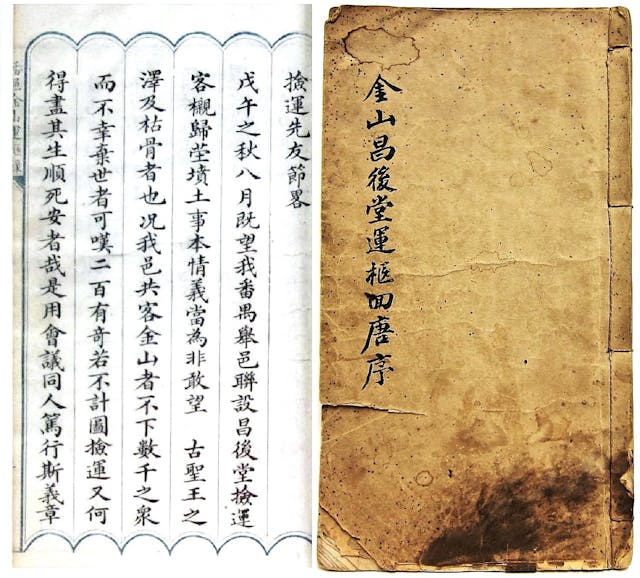 金山昌後堂運柩囬唐序
撿運先友節畧
戊午之秋八月既望我番禺舉邑聯設昌後堂撿運
客櫬歸塋墳土事本情義當為非敢望 古聖王之
澤及枯骨者也况我邑共客金山者不下數千之衆
而不幸棄世者可嘆二百有奇若不計圖撿運又何
得盡其生順死安者哉是用會議同人篤行斯義章